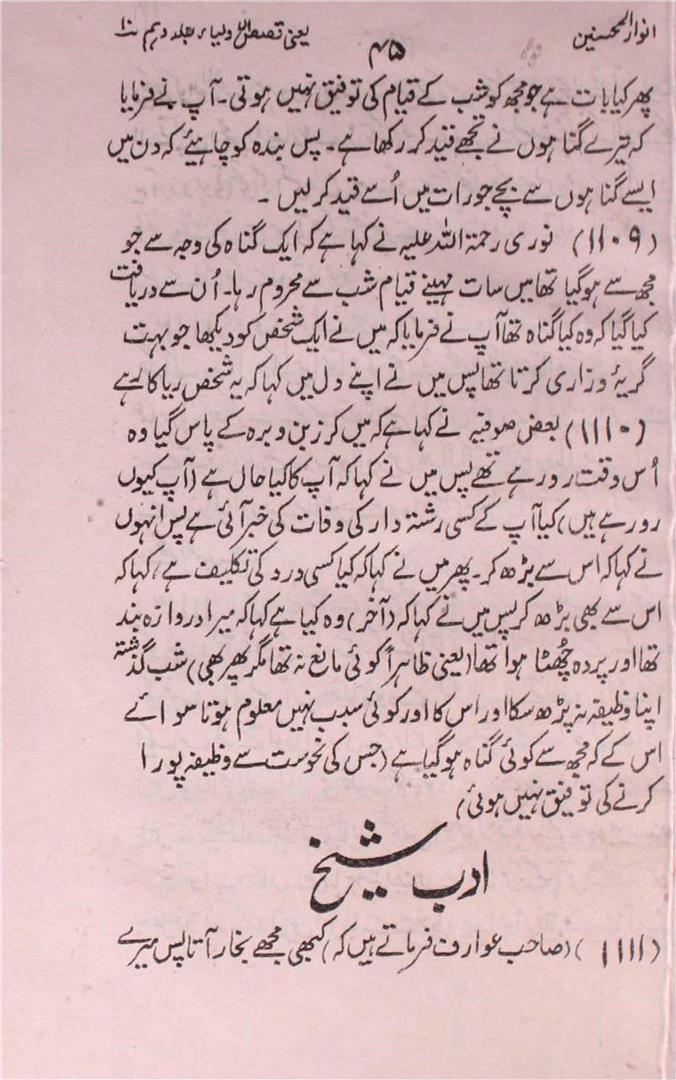 انوار المحسنین
۴۵
یعنی قصص الاولیاء جلد دہم ۱۰
پھر کیا بات ہے جو مجھ کو شب کے قیام کی توفیق نہیں ہوتی۔ آپ نے فرمایا
کہ تیرے گناہوں نے تجھے قید کر رکھا ہے۔ پس بندہ کو چاہیئے کہ دن میں
ایسے گناہوں سے بچے جو رات میں اُسے قید کر لیں ۔
(۱۱۰۹) نوری رحمۃ اللہ علیہ نے کہا ہے کہ ایک گناہ کی وجہ سے جو
مجھ سے ہو گیا تھا میں سات مہینے قیام شب سے محروم رہا۔ اُن سے دریافت
کیا گیا کہ وہ کیا گناہ تھا آپ نے فرمایا کہ میں نے ایک شخص کو دیکھا جو بہت
گریۂ و زاری کرتا تھا پس میں نے اپنے دل میں کہا کہ یہ شخص ریاکار ہے
(۱۱۱۰) بعض صوفیہ نے کہا ہے کہ میں کرز بن وبرہ کے پاس گیا وہ
اُس وقت رو رہے تھے پس میں نے کہا کہ آپ کا کیا حال ہے (آپ کیوں
رو رہے ہیں) کیا آپ کے کسی رشتہ دار کی وفات کی خبر آئی ہے پس انہوں
نے کہا کہ اس سے بڑھ کر۔ پھر میں نے کہا کہ کیا کسی درد کی تکلیف ہے، کہا کہ
اس سے بھی بڑھ کر پس میں نے کہا کہ (آخر) وہ کیا ہے کہا کہ میرا دروازہ بند
تھا اور پردہ چُھٹا ہوا تھا (یعنی ظاہراً کوئی مانع نہ تھا مگر پھر بھی) شب گذشتہ
اپنا وظیفہ نہ پڑھ سکا اور اس کا اور کوئی سبب نہیں معلوم ہوتا سوائے
اس کے کہ مجھ سے کوئی گناہ ہو گیا ہے (جس کی نحوست سے وظیفہ پورا
کرنے کی توفیق نہیں ہوئی)
ادب شیخ
(۱۱۱۱) (صاحب عوارف فرماتے ہیں کہ) کبھی مجھے بخار آتا پس میرے